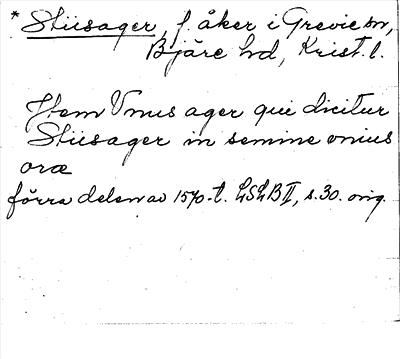 * Stiisager, f. åker i Grevie sn,
Bjäre hd, Krist. l.
Item Vnus ager qui dicitur
Stiisager in semine vnius
oræ
förra delen av 1570-t. LSLB II, s. 30. orig.